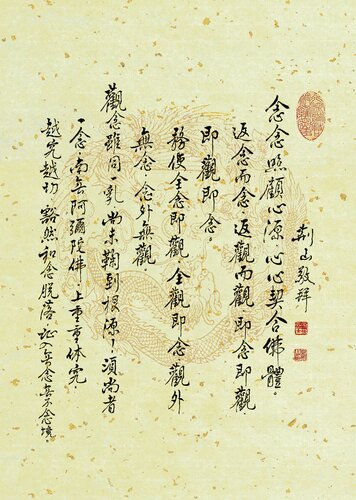 念念照顧心源心心契合佛體。
返念而念。返觀而觀即念即觀
即觀即念。
務使全念即觀全觀即念。觀外
無念。念外無觀。
觀念雖同水乳尚未鞠到根源!須尚者
一念南無阿彌陀佛上重重体究。
越究越切豁然和念脫落证入無念無不念境。
荆山敬拜